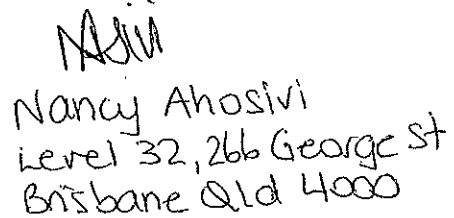 Nancy Ahosivi
Level 32, 266 George St
Brisbane Qld 4000